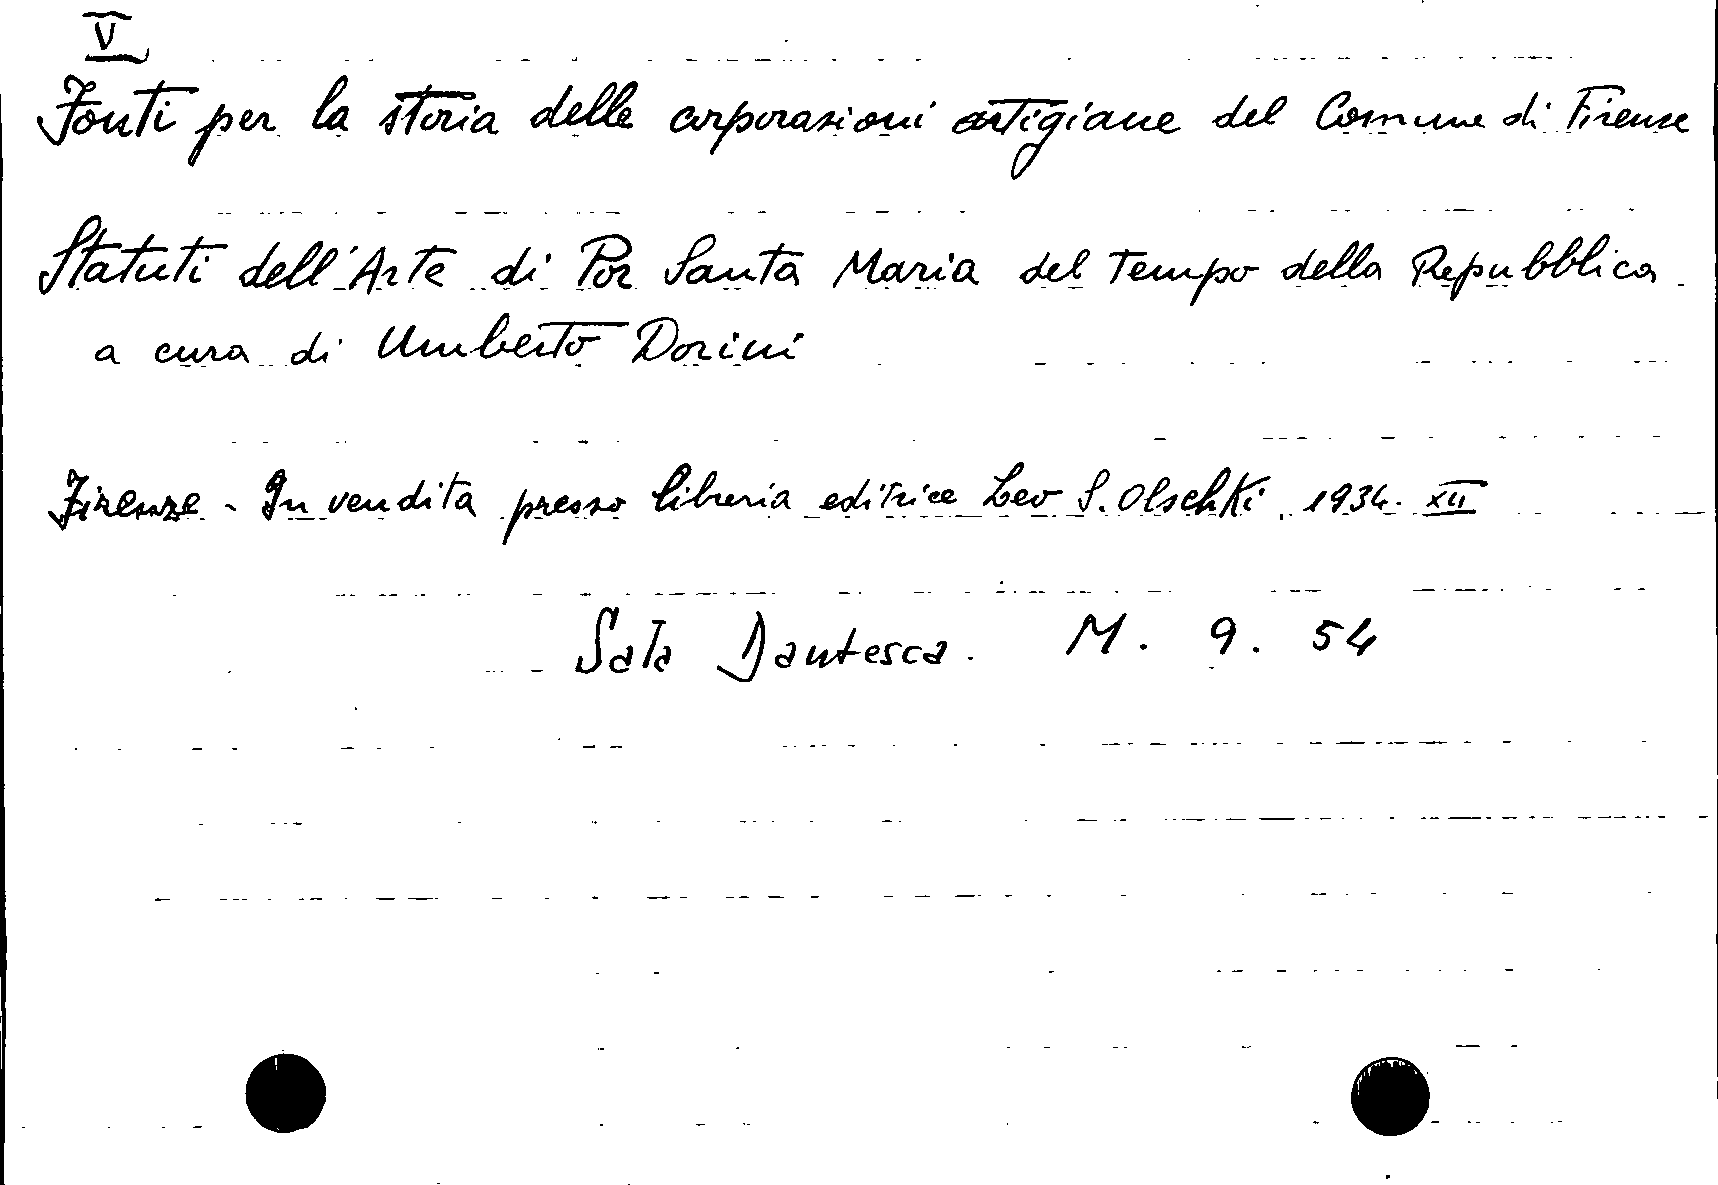 V
Fonti per la storia delle corporazioni artigiane del Comune di Firenze
Statuti dell'Arte di Por Santa Maria del Tempo della Repubblica
a cura di Umberto Dorini
Firenze - In vendita presso libreria editrice Leo S. Olschki. 1934. XII
Sala Dantesca. M. 9. 54